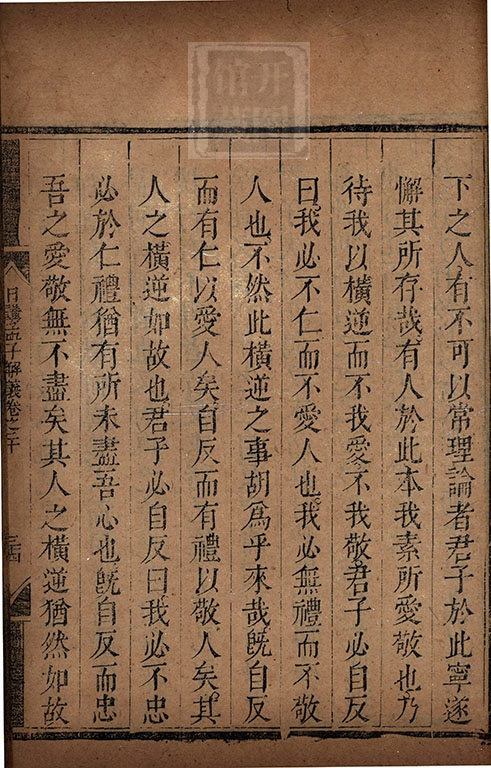 下之人有不可以常理論者君子於此寧遂
懈其所存哉有人於此本我素所愛敬也乃
待我以橫逆而不我愛不我敬君子必自反
曰我必不仁而不愛人也我必無禮而不敬
人也不然此橫逆之事胡為乎來哉既自反
而有仁以愛人矣自反而有禮以敬人矣其
人之橫逆如故也君子必自反曰我必不忠
必於仁禮猶有所未盡吾心也既自反而忠
吾之愛敬無不盡矣其人之橫逆猶然如故
日講孟子解義卷之二十
三古